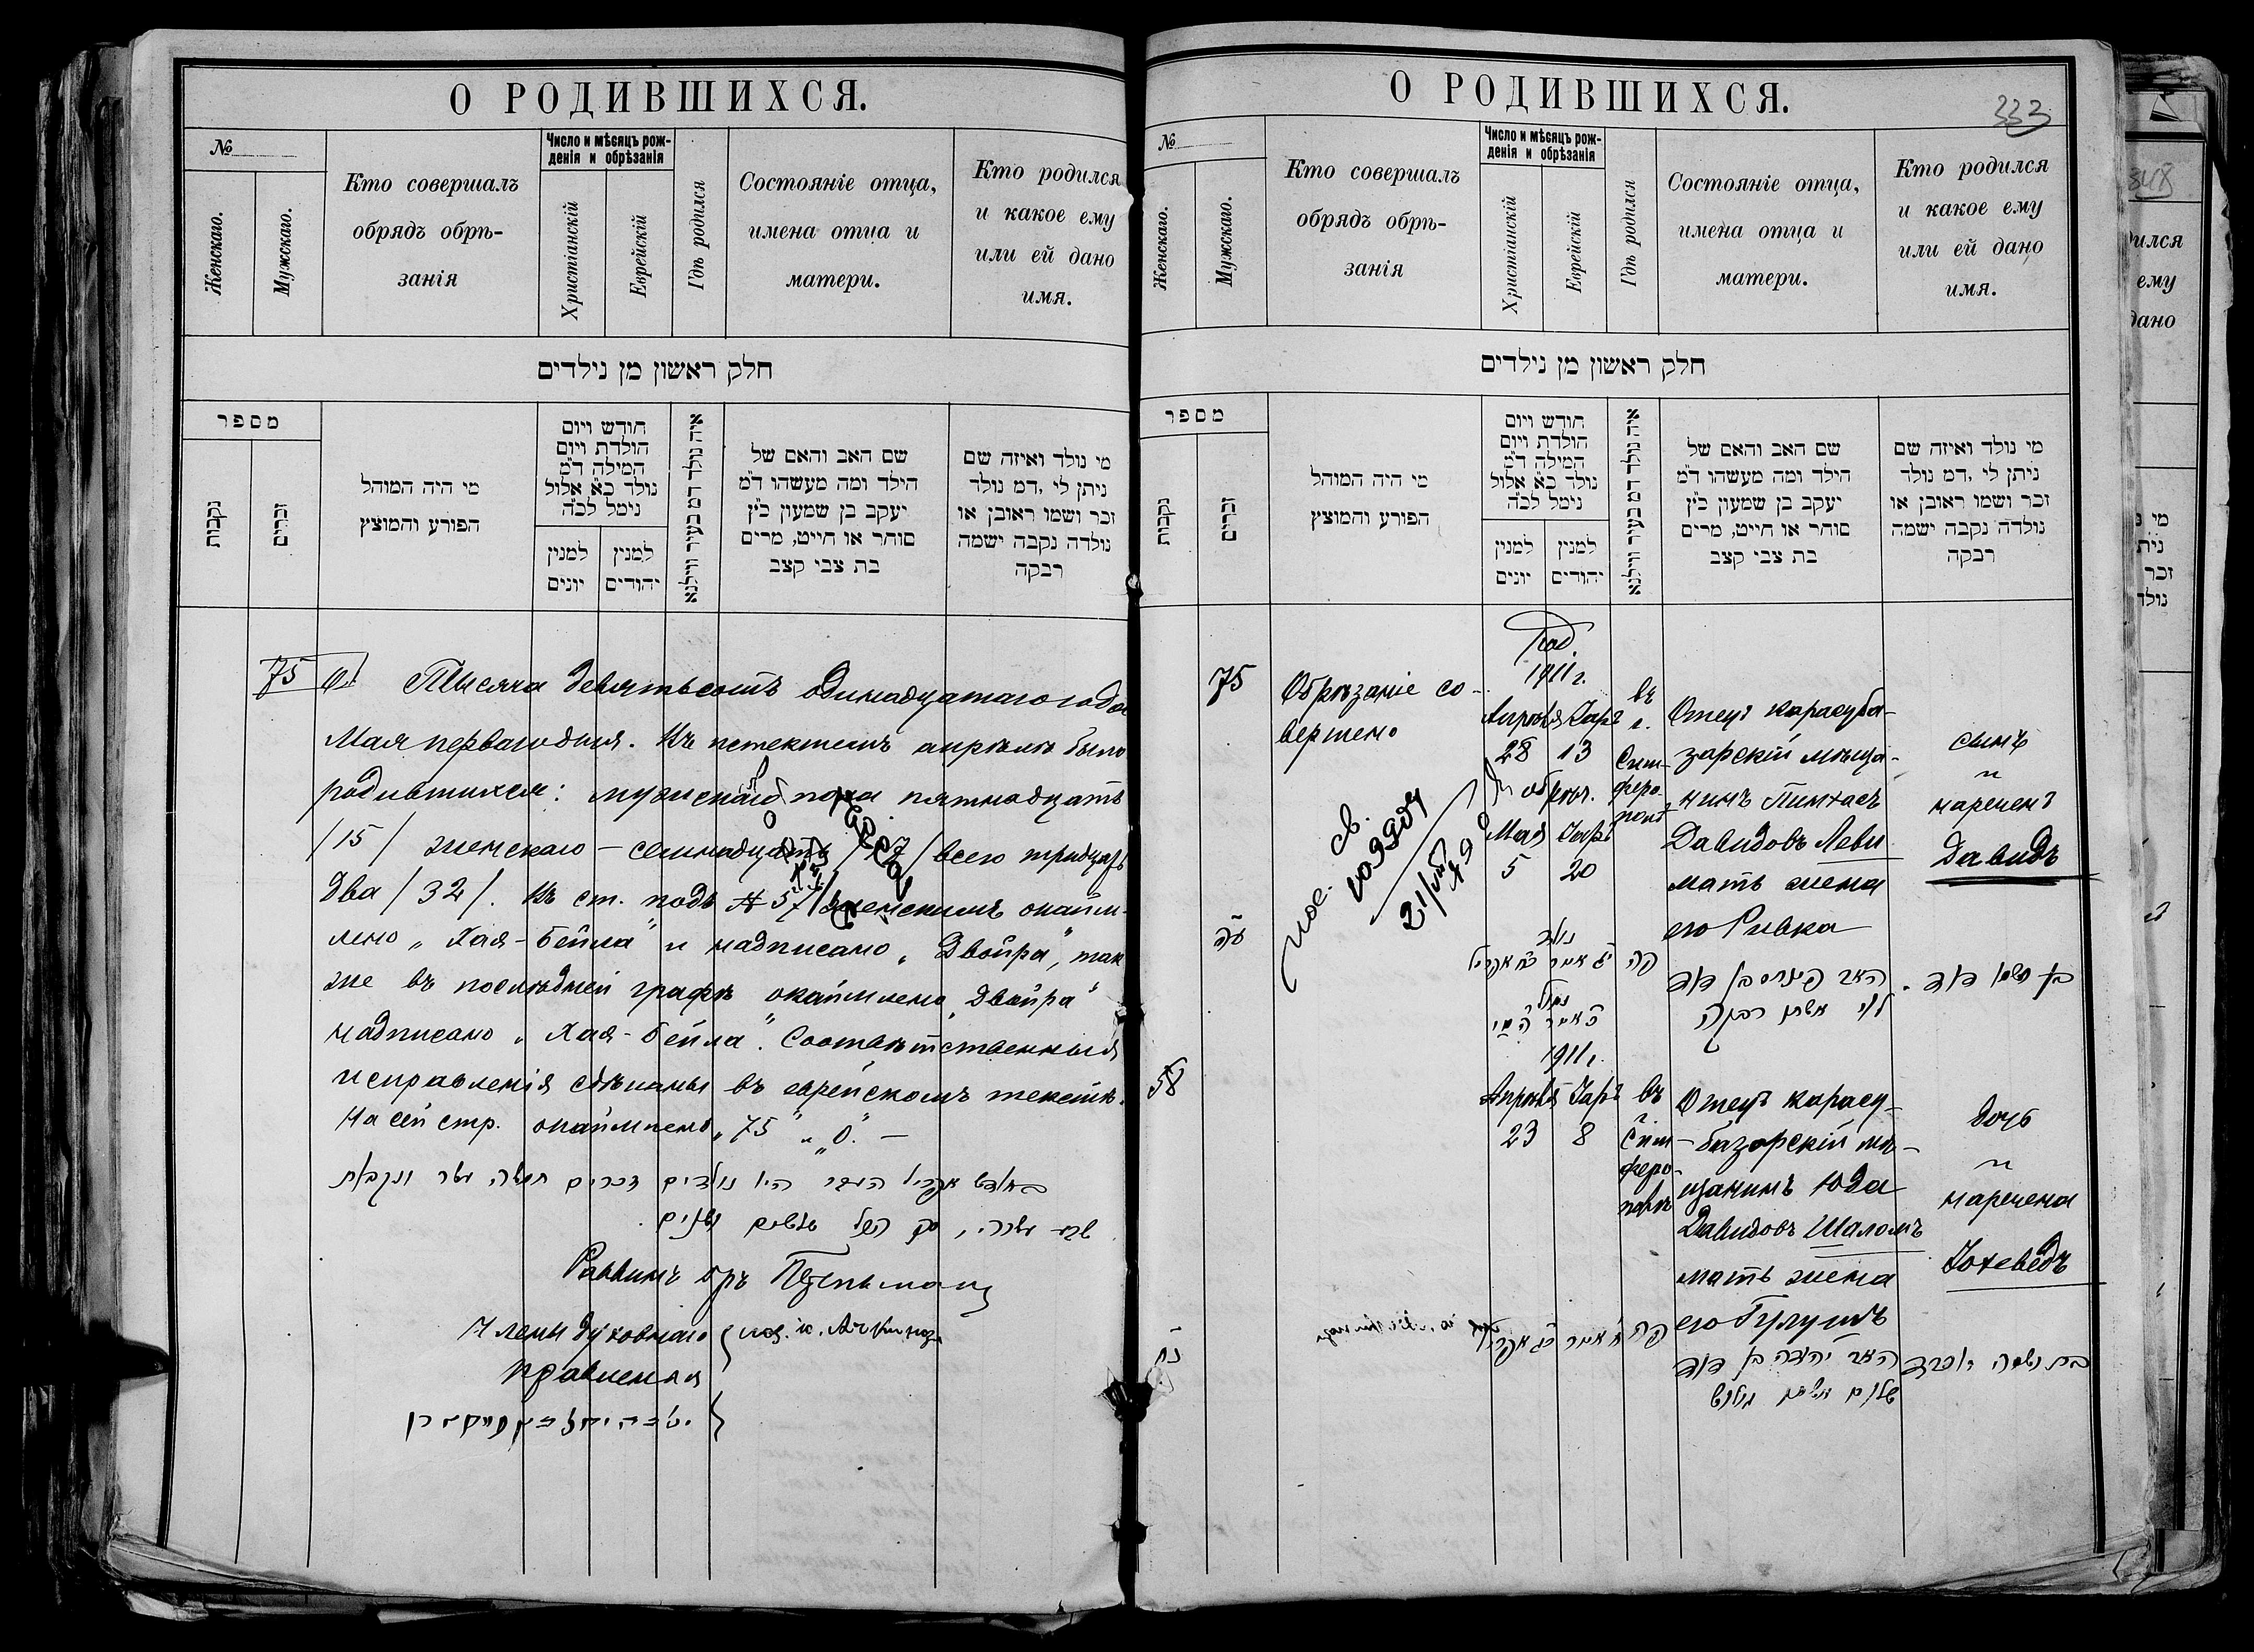 О РОДИВШИХСЯ.
№
Женскаго.
Мужскаго.
Кто совершалъ
обрядъ обрѣ-
занія
Число и мѣсяцъ рож-
денія и обрѣзанія
Христіанскій
Еврейскій
Гдѣ родился
Состояніе отца,
имена отца и
матери.
Кто родился
и какое ему
или ей дано
имя.
חלק ראשון מן נילדים
מספר
נקבות
זכרים
מי היה המוהל
הפורע והמוצץ
חודש ויום
הולדת ויום
המילה ד״מ
נולד כ״א אלול
נימל לכ״ה
למנין
יונים
למנין
יהודים
איה נולד דמ בעיר ווילנא
שם האב והאם של
הילד ומה מעשהו ד״מ
יעקב בן שמעון כ״ץ
סוחר או חייט, מרים
בת צבי קצב
מי נולד ואיזה שם
ניתן לי ,דמ נולד
זכר ושמו ראובן או
נולדה נקבה ישמה
רבקה
75
Тысяча девятьсотъ одинадцатаго года
Мая перваго дня. Въ истекшемъ апрѣлѣ было
родившихся: мужскаго пола пятнадцать
/15/ женскаго – семнадцать /17/ всего тридцать
два /32/. Въ ст. подъ № 57 женскимъ окайм-
лено „Хая-Бейла" и надписано „Двойра", так
же въ послѣдней графѣ окаймлено „Двойра"
надписано „Хая-Бейла". Соотвѣтственныя
исправленія сдѣланы въ еврейскомъ текстѣ.
На сей стр. окаймлено „75" „О". –
היו נולדים זכרים חמשה עשר ונקבות
שבע עשרה, סך הכל שלשים ושנים.
Раввинъ
Члены духовнаго
правленія
О РОДИВШИХСЯ.
333
№
Женскаго.
Мужскаго.
Кто совершалъ
обрядъ обрѣ-
занія
Число и мѣсяцъ рож-
денія и обрѣзанія
Христіанскій
Еврейскій
Гдѣ родился
Состояніе отца,
имена отца и
матери.
Кто родился
и какое ему
или ей дано
имя.
חלק ראשון מן נילדים
מספר
נקבות
זכרים
מי היה המוהל
הפורע והמוצץ
חודש ויום
הולדת ויום
המילה ד״מ
נולד כ״א אלול
נימל לכ״ה
למנין
יונים
למנין
יהודים
איה נולד דמ בעיר ווילנא
שם האב והאם של
הילד ומה מעשהו ד״מ
יעקב בן שמעון כ״ץ
סוחר או חייט, מרים
בת צבי קצב
מי נולד ואיזה שם
ניתן לי ,דמ נולד
זכר ושמו ראובן או
נולדה נקבה ישמה
רבקה
75
Обрѣзаніе со-
вершено
Род.
1911 г.
Апрѣля Іаръ
28 13
обрѣз.
Мая Іаръ
5 20
въ
г.
Сим-
феро-
полѣ
Отецъ карасуба-
зарскій мѣща-
нинъ Пинхасъ
Давидовъ Леви
мать жена
его Ривка
сынъ
и
нареченъ
Давидъ
עה
נולד
יג אייר כח אפריל
נמול
כ אייר ה מאי
פה
האב פינחס בן דוד
לוי אשתו רבקה
בן ושמו דוד
58
1911 г.
Апрѣля Іаръ
23 8
въ
Сим-
феро-
полѣ
Отецъ карасу-
базарскій мѣ-
щанинъ Юда
Давидовъ Шаломъ
мать жена
его Гулушъ
дочь
и
наречена
Іохеведъ
נח
ח אייר כג אפריל
פה
האב יהודה בן דוד
שלום אשתו גולוש
בת ושמה יוכבד
348